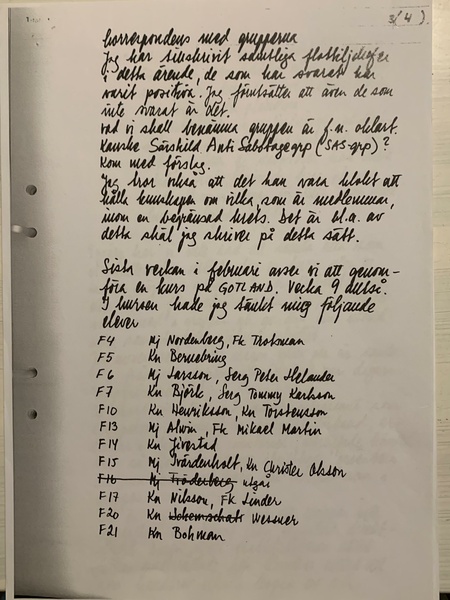 3(4).
korrespondens med grupperna
Jag har tillskrivit samtliga flottiljchefer
i detta ärende, de som har svarat har
varit positiva. Jag förutsätter att även de som
inte svarat är det.
Vad vi skall benämna gruppen är f.n. oklart.
Kanske Särskild Anti Sabotagegrp (SAS-grp)?
Kom med förslag.
Jag tror också att det kan vara klokt att
hålla kunskapen om vilka, som är medlemmar,
inom en begränsad krets. Det är bl.a. av
detta skäl jag skriver på detta sätt.
Sista veckan i februari avser vi att genom-
föra en kurs på GOTLAND. Vecka 9 alltså.
I kursen hade jag tänkt mig följande
elever
F4 Mj Nordenberg, Fk Trotsman
F5 Kn Bernebring
F6 Mj Larsson, Serg Peter Helander
F7 Kn Björk, Serg Tommy Karlsson
F10 Kn Henriksson, Kn Torstensson
F13 Mj Alwin, Fk Mikael Martin
F14 Kn Jivestad
F15 Mj Svärdenholt, Kn Christer Olsson
F16 Mj Träderberg utgår
F17 Kn Nilsson, Fk Linder
F20 Kn Wessner
F21 Kn Bohman